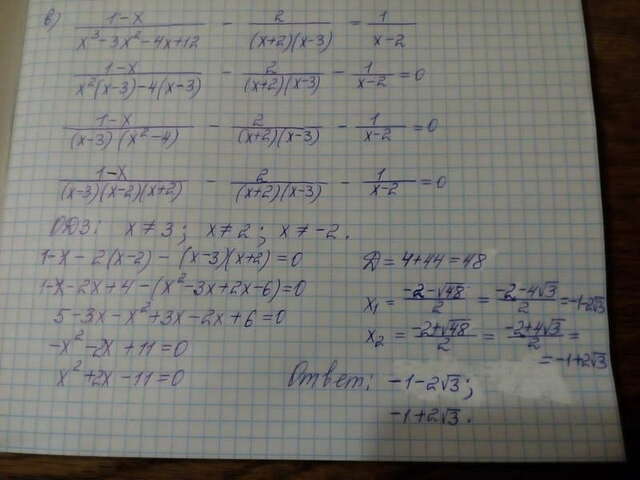 в) (1-x)/(x³-3x²-4x+12) - 2/((x+2)(x-3)) = 1/(x-2)
(1-x)/(x²(x-3)-4(x-3)) - 2/((x+2)(x-3)) - 1/(x-2) = 0
(1-x)/((x-3)(x²-4)) - 2/((x+2)(x-3)) - 1/(x-2) = 0
(1-x)/((x-3)(x-2)(x+2)) - 2/((x+2)(x-3)) - 1/(x-2) = 0
ОДЗ: x≠3; x≠2; x≠-2.
1-x-2(x-2)-(x-3)(x+2)=0
1-x-2x+4-(x²-3x+2x-6)=0
5-3x-x²+3x-2x+6=0
-x²-2x+11=0
x²+2x-11=0
D=4+44=48
x₁ = (-2-√48)/2 = (-2-4√3)/2 = -1-2√3
x₂ = (-2+√48)/2 = (-2+4√3)/2 =
= -1+2√3
Ответ: -1-2√3;
-1+2√3.